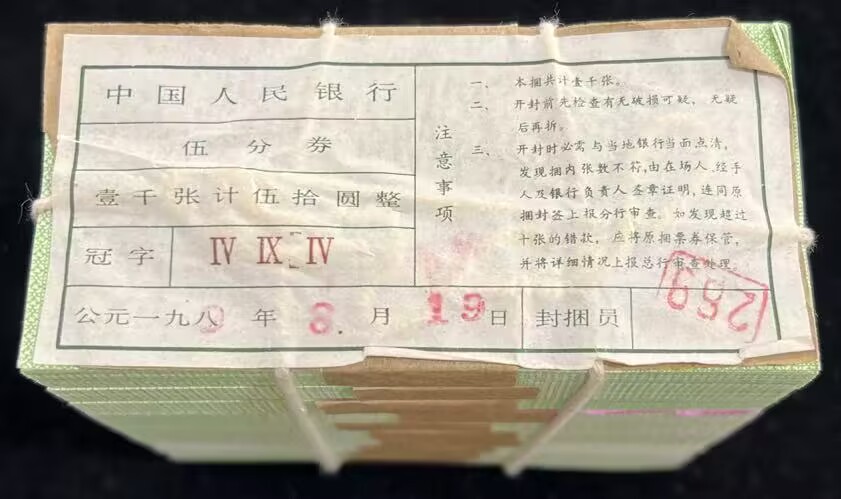 中国人民银行
伍分券
壹千张计伍拾圆整
冠字 Ⅳ Ⅸ Ⅳ
公元一九八9年8.月19日 封捆员
注意事项
一、 本捆共计壹千张。
二、 开封前先检查有无破损可疑，无疑
后再拆。
三、 开封时必需与当地银行当面点清，
发现捆内张数不符，由在场人、经手
人及银行负责人签章证明，连同原
捆封签上报分行审查。如发现超过
十张的错款，应将原捆票券保管，
并将详细情况上报总行审查处理。
269